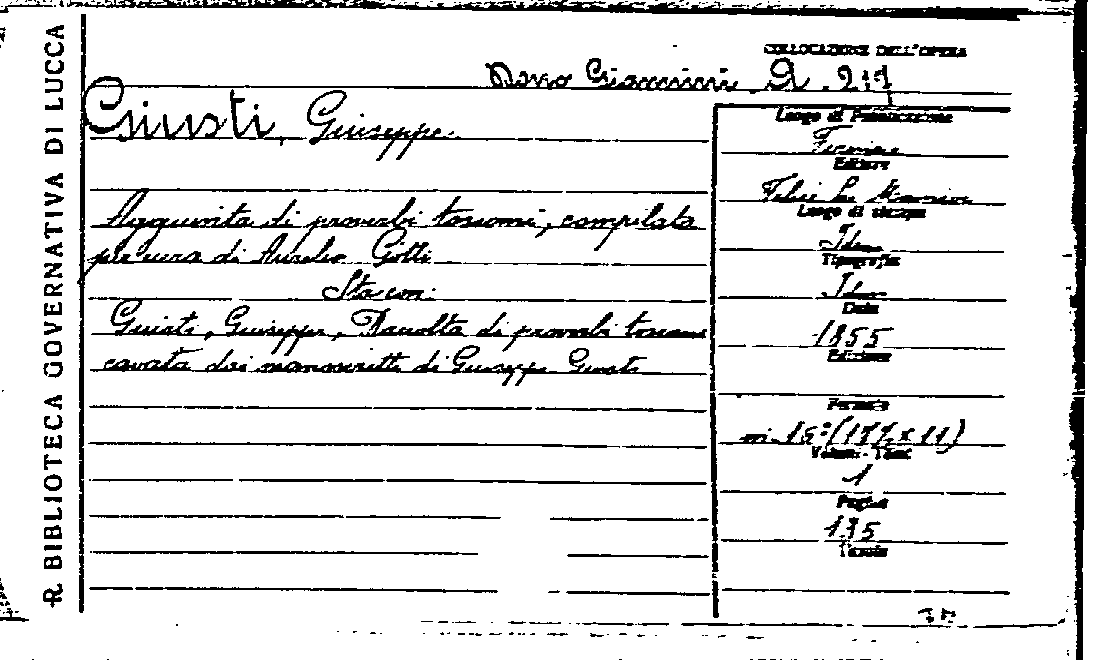 R. BIBLIOTECA GOVERNATIVA DI LUCCA
COLLOCAZIONE DELL'OPERA
Dono Giannini A. 217
Giusti, Giuseppe
Aggiunta di proverbi toscani, compilata
per cura di Aurelio Gotti
Sta con:
Giusti, Giuseppe, Raccolta di proverbi toscani
cavata dai manoscritti di Giuseppe Giusti
Luogo di Pubblicazione
Firenze
Editore
Felice Le Monnier
Luogo di stampa
Idem
Tipografia
Idem
Data
1855
Edizione
Formato
in 16º (17,
x 11)
Volumi - Tomi
1
Pagine
135
Tavole